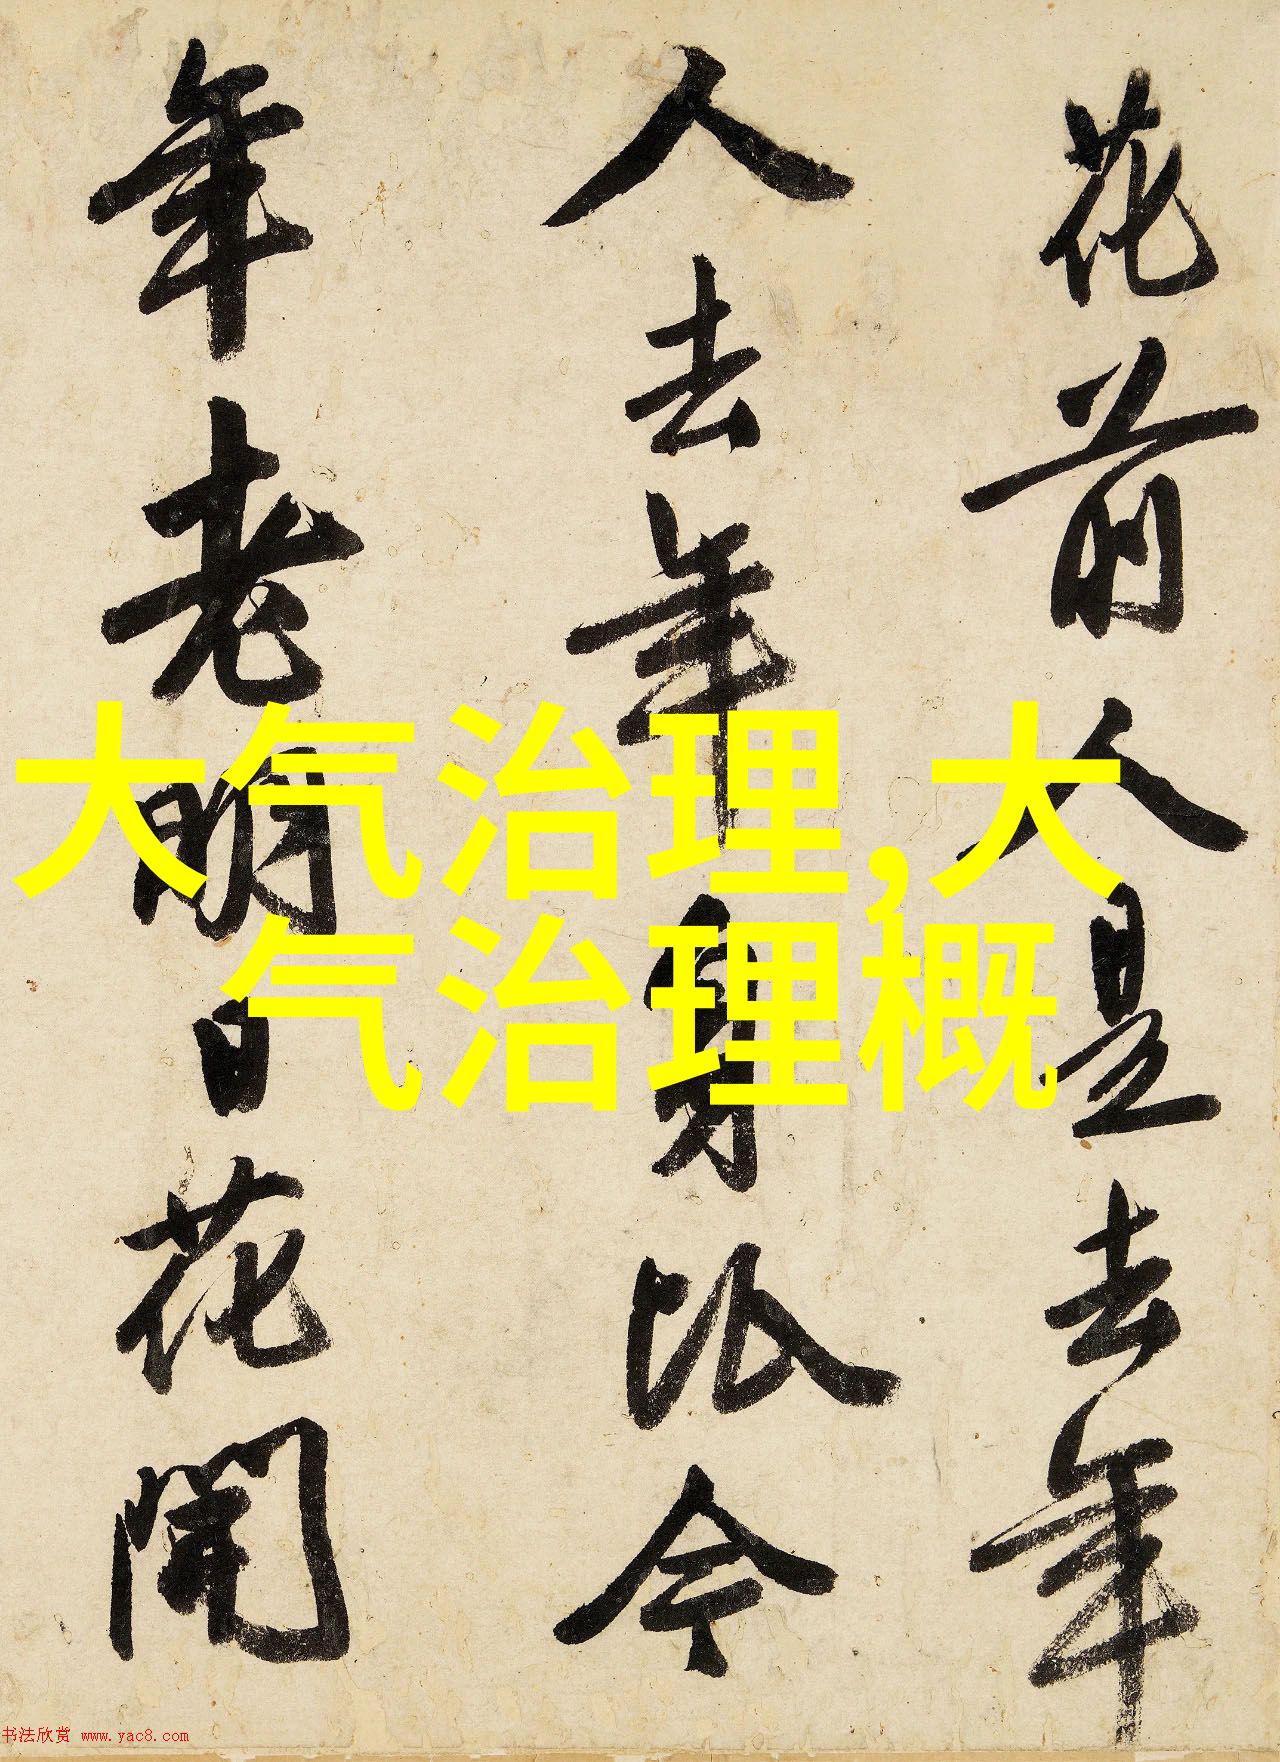 花前人是去年
人去年身比今
年老明日花開
大气治理,大
气治理概
书法欣赏 www.yac8.com